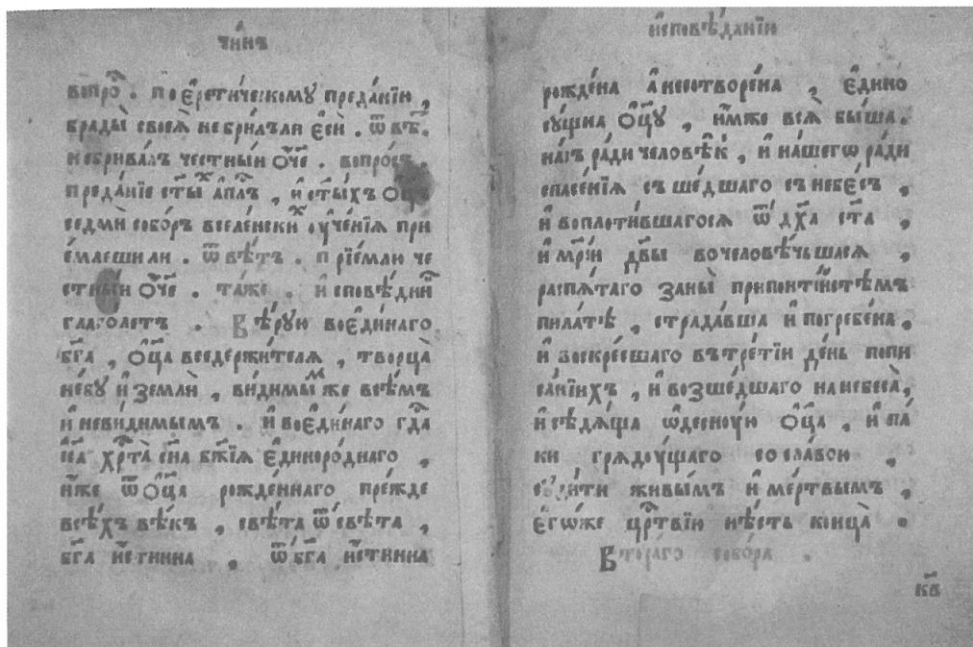 чи́нъ
вопро̑с. по є҆рети́ческому преда́нїю,
брады̀ своея̀ не брила́ли є҆сѝ. ѿвѣ́т.
не бривалъ честны́й ѻ҆́ч҃е. вопро́съ.
преда́нїе ст҃ы́х а҆п҃лъ, и҆ ст҃ы́хъ ѻ҆ц҃ъ
седмѝ собо́ръ вселе́нских ѹ҆че́нїя при
е́млеши ли. ѿвѣ́тъ. прїе́млю че
стны́й ѻ҆́ч҃е. та́же. и҆сповѣ́дник
глаго́летъ. Вѣ́рую во є҆ди́наго
бг҃а, ѻ҆ц҃а̀ вседержи́теля, творца̀
не́бу и҆ землѝ, ви́димым же всѣ́мъ
и҆ неви́димымъ. и҆ во є҆ди́наго гд҃а
і҆с҃а хр҃та̀ сн҃а бж҃їя є҆диноро́днаго,
и҆́же ѿ ѻ҆ц҃а̀ рожде́ннаго пре́жде
всѣ́хъ вѣ́къ, свѣ́та ѿ свѣ́та,
бг҃а и҆́стинна. ѿ бг҃а и҆́стинна
и҆сповѣ́данїю
рожде́на а҆ несотворе́на, є҆дино
су́щна ѻ҆ц҃у̀, и҆́мже вся̀ бы́ша.
на́съ ра́ди человѣ́к, и҆ на́шегѡ ра́ди
спасе́нїя сше́дшаго съ небе́съ,
и҆ воплоти́вшагося ѿ дх҃а ст҃а,
и҆ мр҃і́и дв҃ы вочеловѣ́чьшася,
распя́таго за ны̀ при понті́йстѣмъ
пила́тѣ, страда́вша и҆ погребе́на.
и҆ воскре́сшаго въ тре́тїи де́нь по пи
са́нїихъ, и҆ возше́дшаго на небеса̀,
и҆ сѣдя́ща ѡ҆десну́ю ѻ҆ц҃а̀, и҆ па́
ки гряду́щаго со сла́вою,
суди́ти живы́мъ и҆ ме́ртвымъ,
є҆гѡ́же цр҃твїю нѣ́сть конца̀.
Втора́го собо́ра.
к҃в